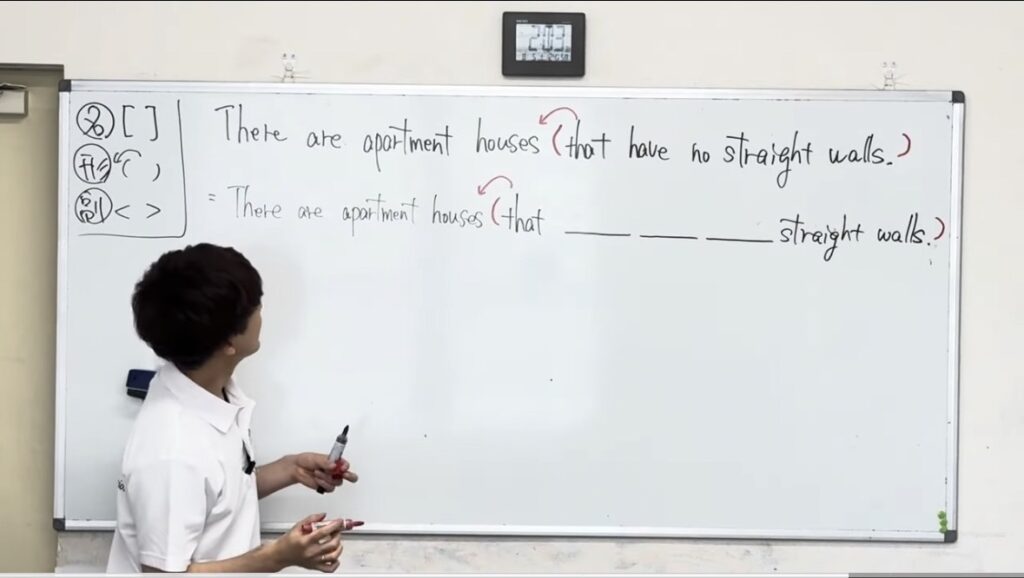 名 [ ]
形 ( )
副 < >
There are apartment houses (that have no straight walls.)
= There are apartment houses (that ___ ___ ___ straight walls.)